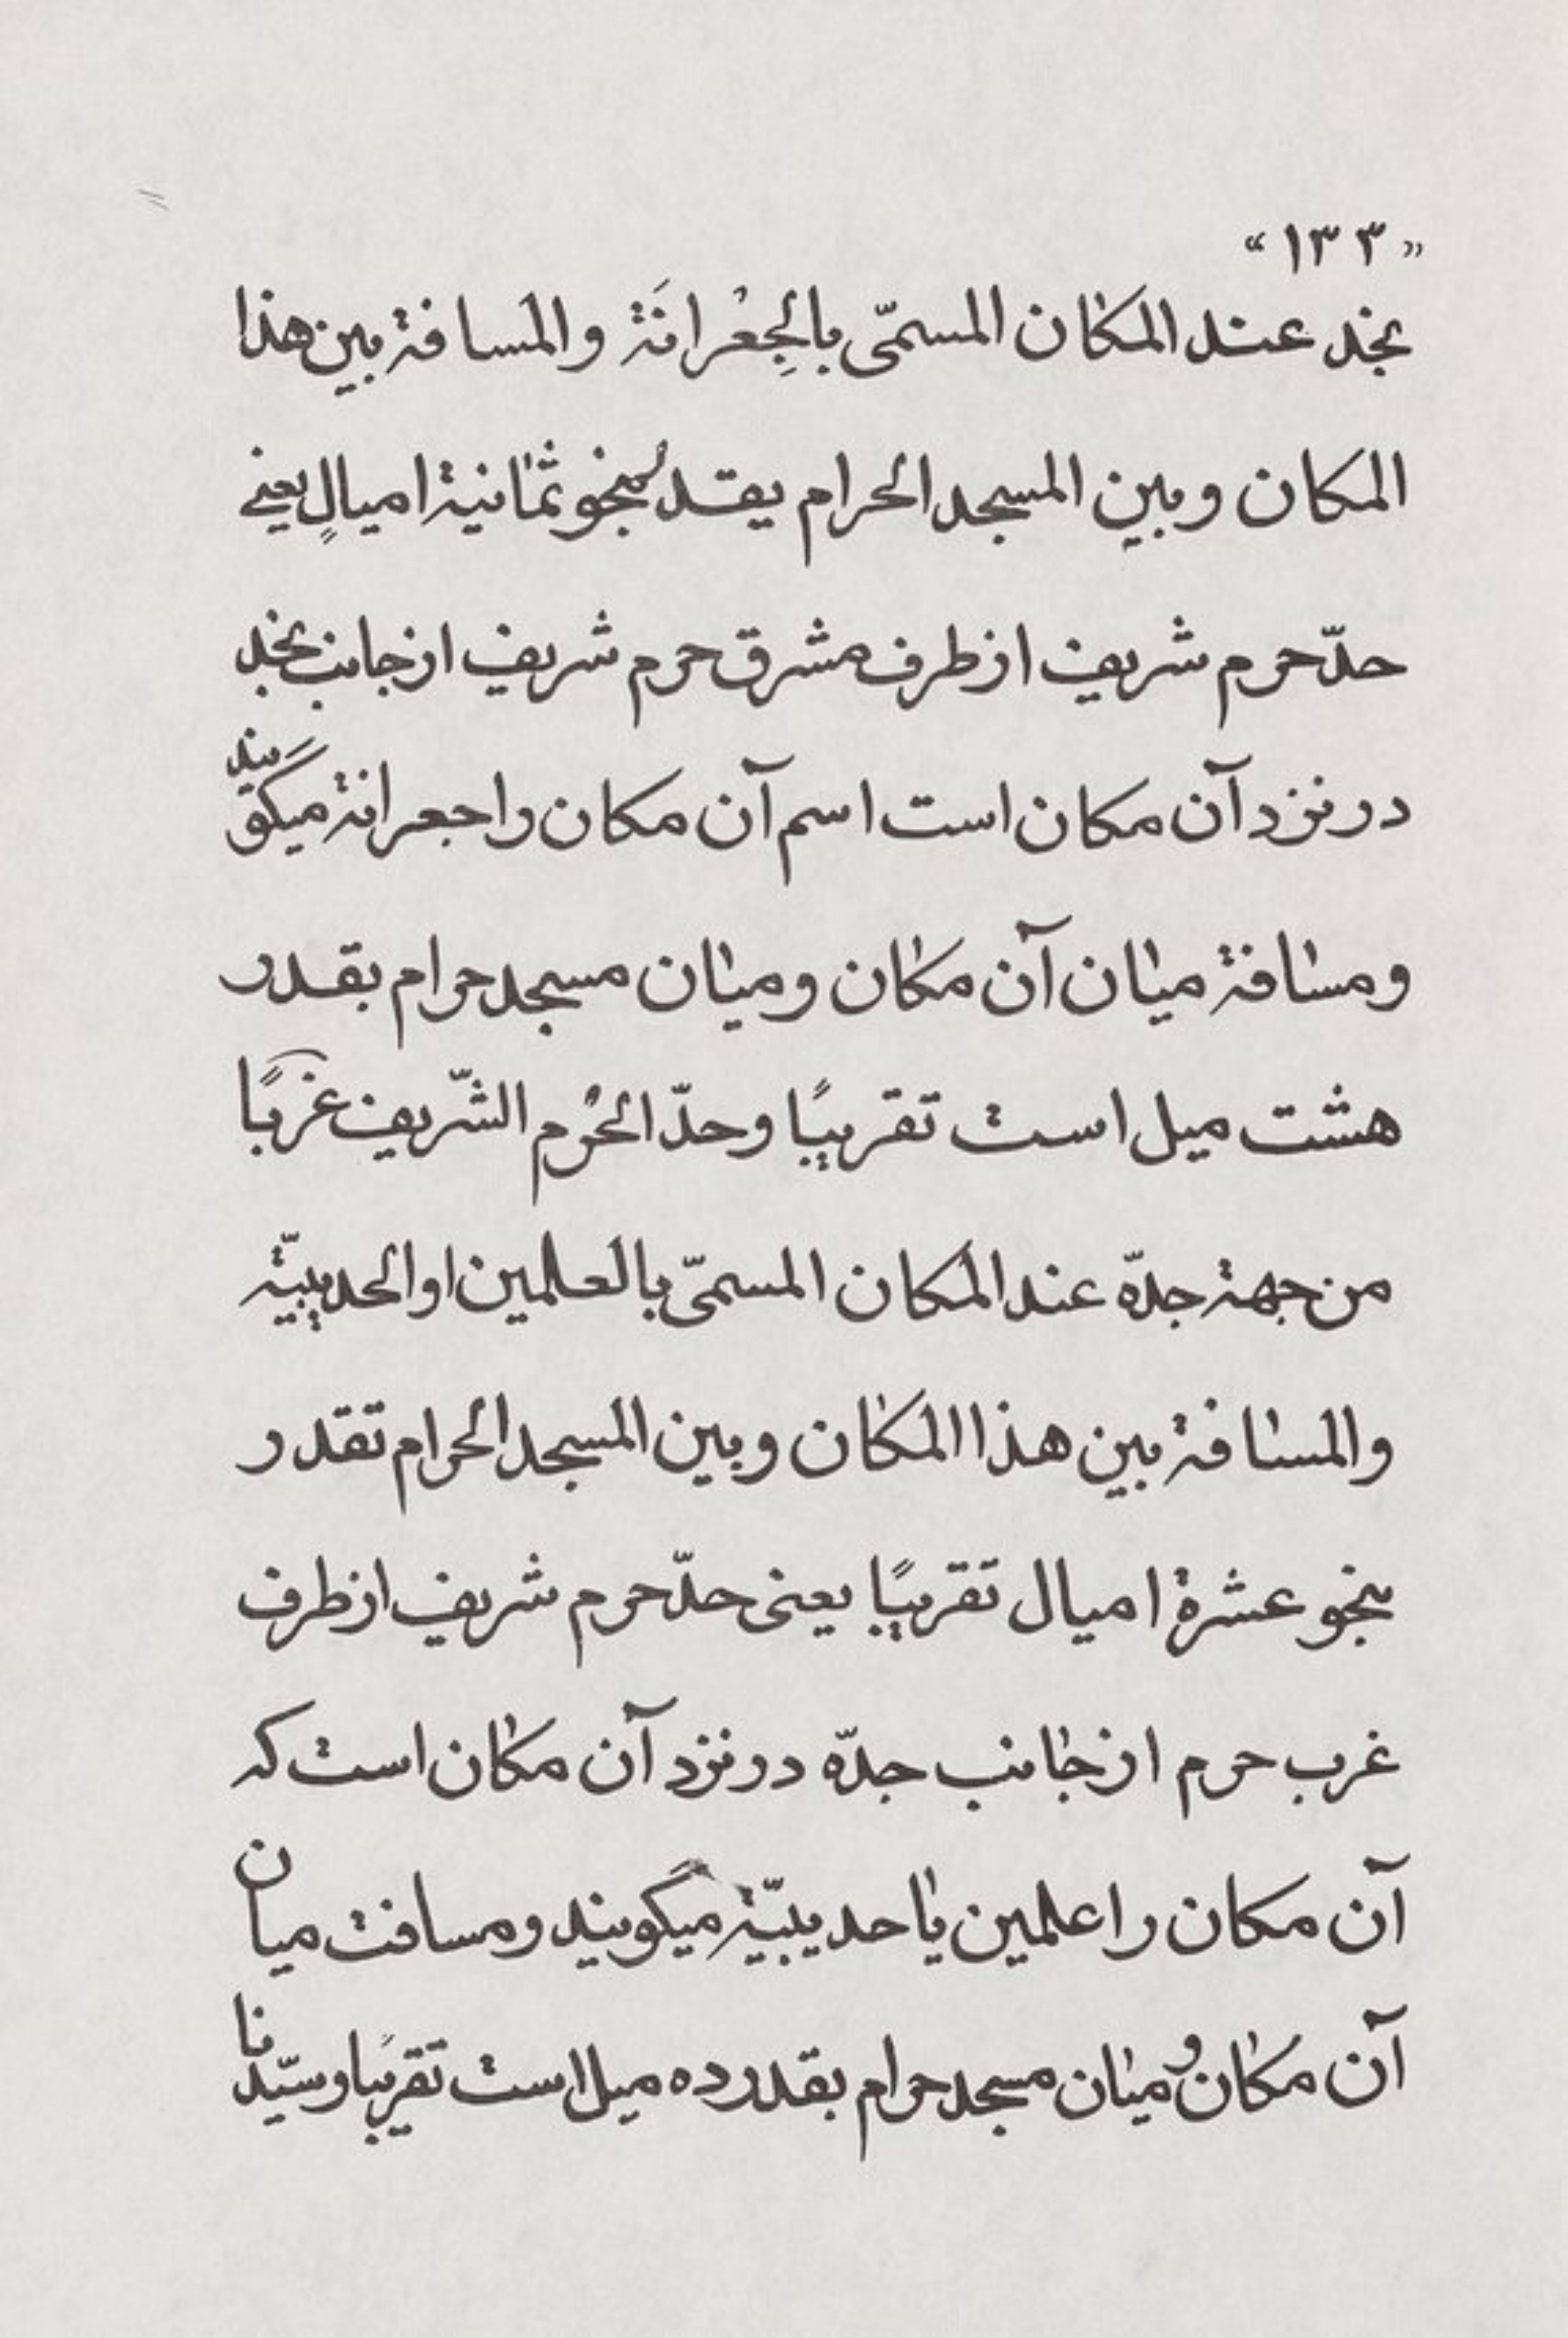 «١٣٣»
نجد عند المكان المسمّى بالجِعْرانَة والمسافة بين هذا
المكان وبين المسجد الحرام يقدر بنحو ثمانية اميالٍ يعنے
حدّ حرم شریف از طرف مشرق حرم شریف از جانب نجد
در نزد آن مکان است اسم آن مکان را جعرانة میگویند
ومسافة میان آن مکان ومیان مسجد حرام بقدر
هشت میل است تقریبًا وحدّ الحرم الشّريف غربًا
من جهة جدّه عند المكان المسمّى بالعلمين او الحديبيّة
والمسافة بين هذا المكان وبين المسجد الحرام تقدر
بنحو عشرة اميال تقريبًا يعنى حدّ حرم شریف از طرف
غرب حرم از جانب جدّه در نزد آن مکان است که
آن مکان را علمین یا حدیبیّة میگویند ومسافت میان
آن مکان و میان مسجد حرام بقدر ده میل است تقریبا وسیّدنا